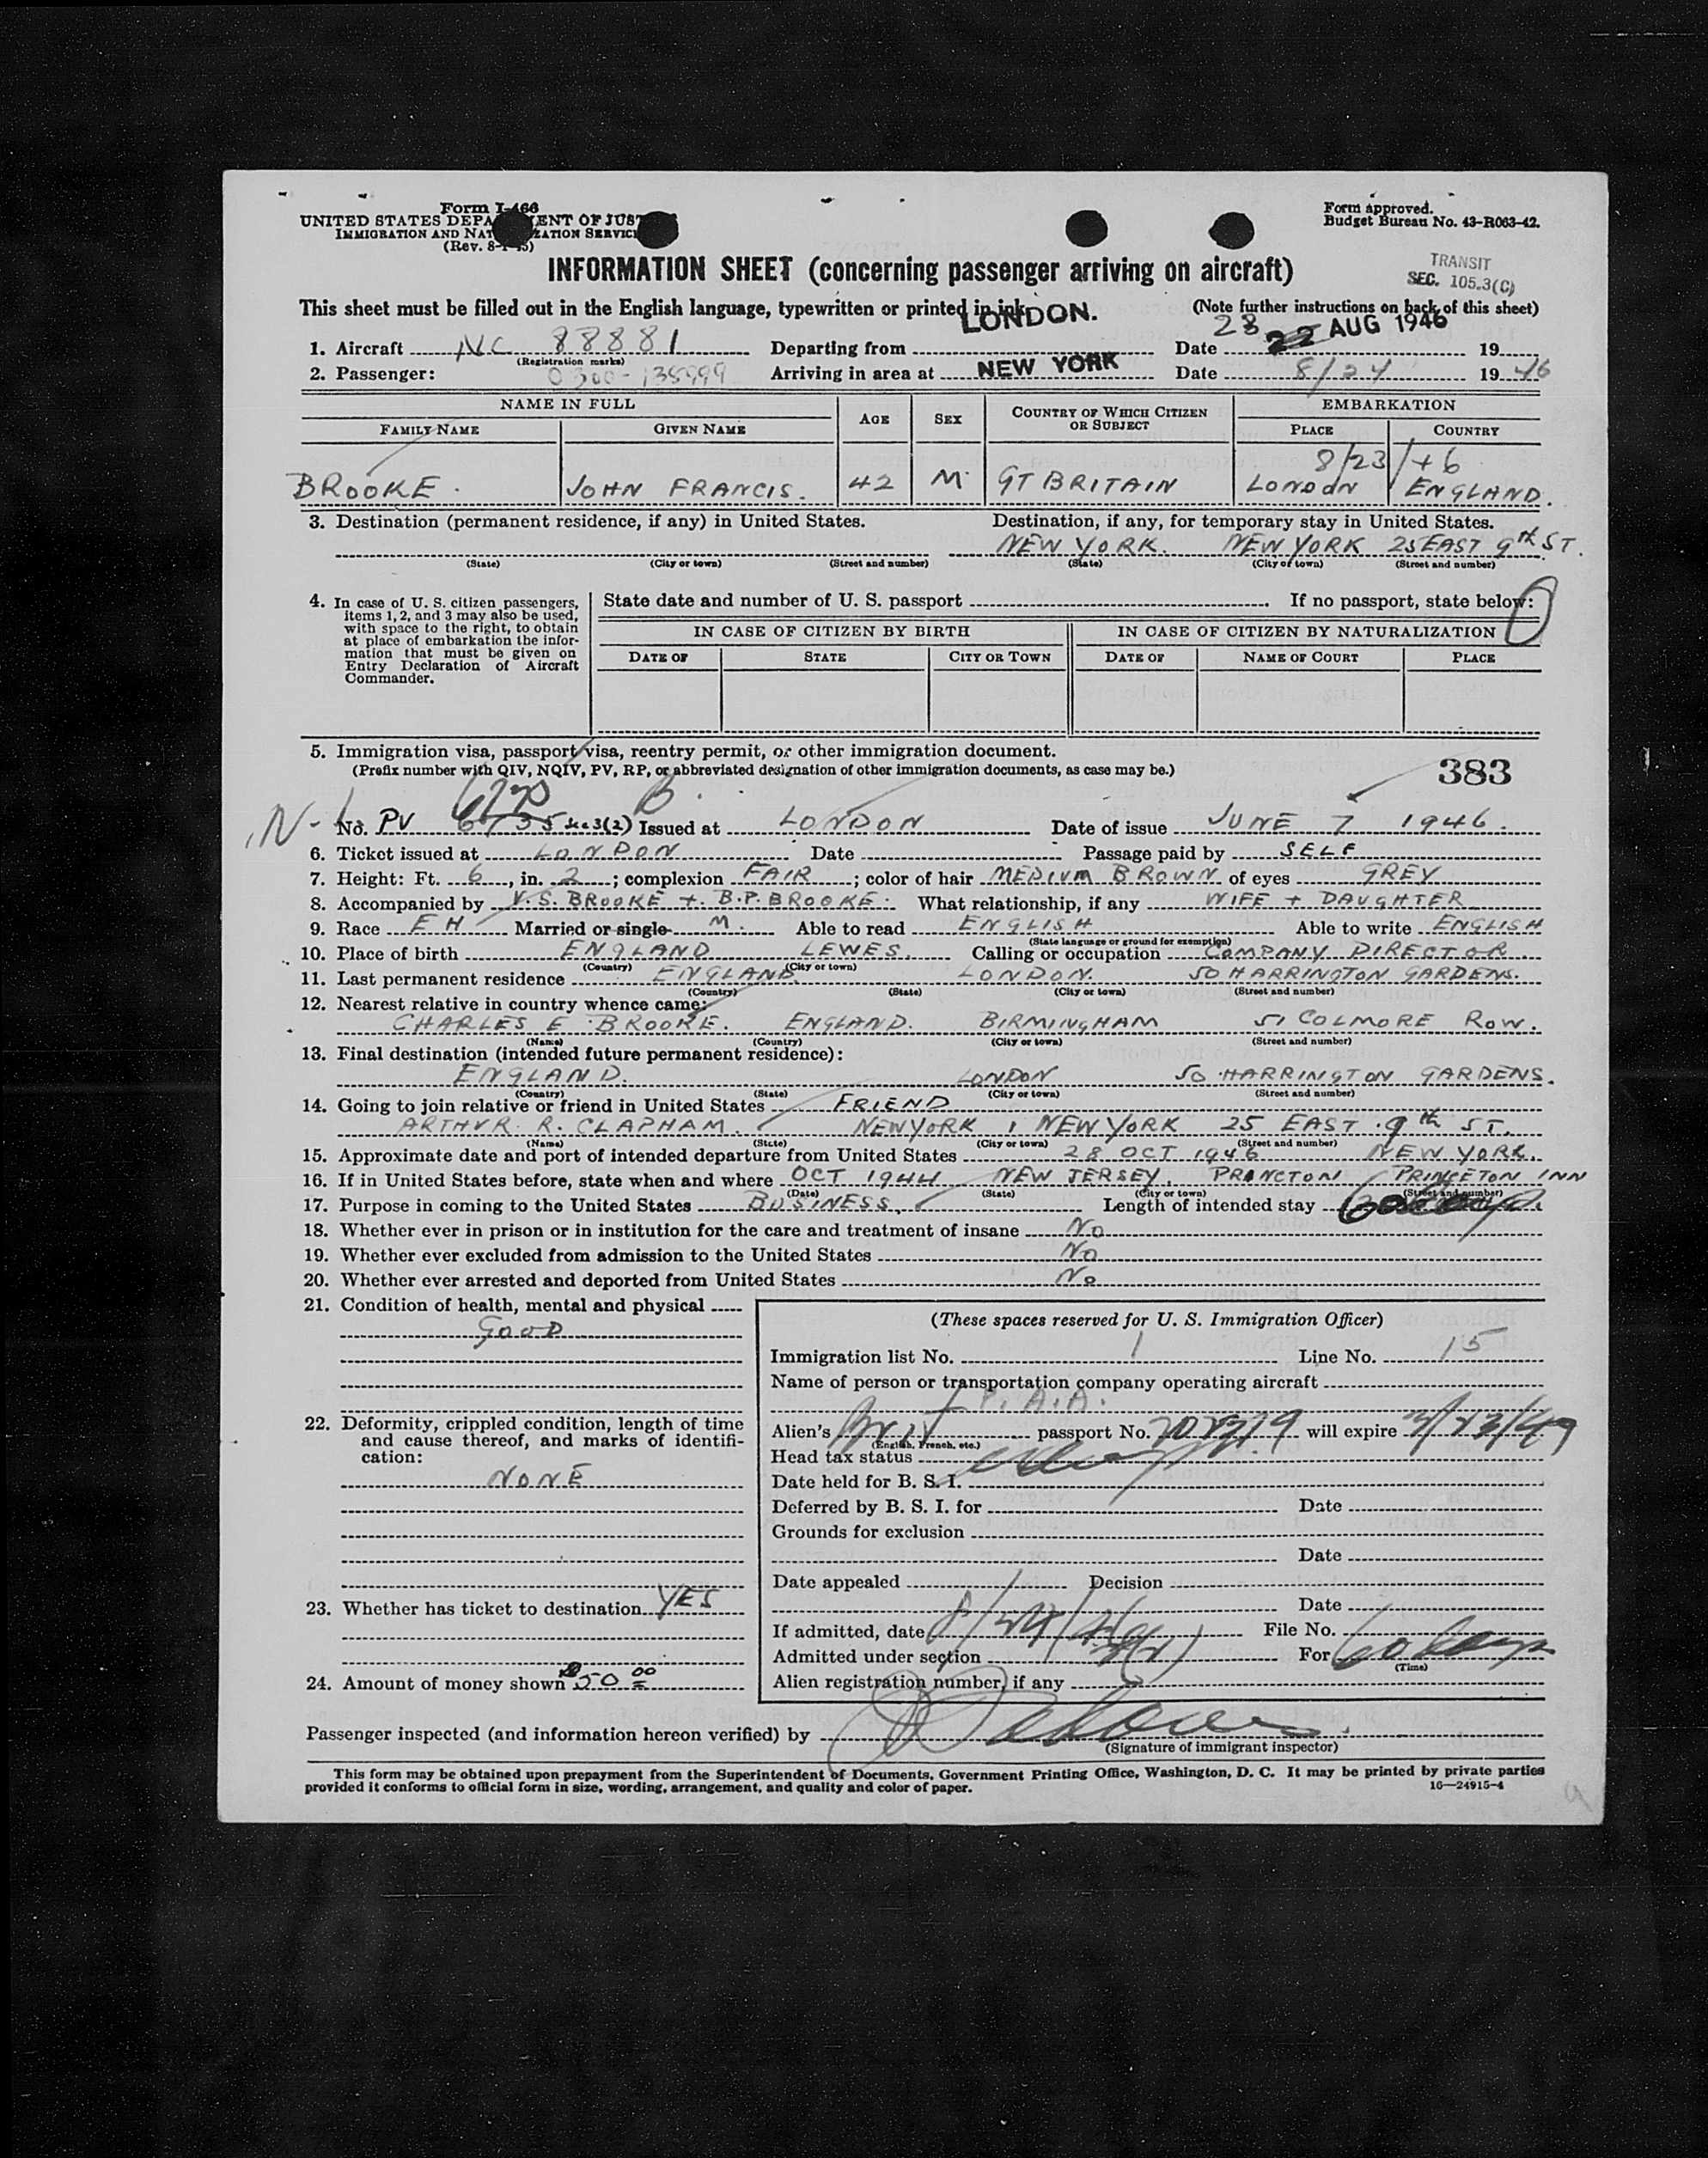 Form I-466
UNITED STATES DEPARTMENT OF JUSTICE
IMMIGRATION AND NATURALIZATION SERVICE
(Rev. 8-1-45)
Form approved.
Budget Bureau No. 43-R063-42.
INFORMATION SHEET (concerning passenger arriving on aircraft)
TRANSIT
SEC. 105.3(C)
This sheet must be filled out in the English language, typewritten or printed in ink.
(Note further instructions on back of this sheet)
1. Aircraft NC 88881 Departing from LONDON. Date 23 22 AUG 1946 19
(Registration marks)
2. Passenger: 0300-135999 Arriving in area at NEW YORK Date 8/24 1946
NAME IN FULL AGE SEX COUNTRY OF WHICH CITIZEN OR SUBJECT EMBARKATION
FAMILY NAME GIVEN NAME PLACE COUNTRY
8/23/46
BROOKE. JOHN FRANCIS. 42 M. GT BRITAIN LONDON ENGLAND.
3. Destination (permanent residence, if any) in United States. Destination, if any, for temporary stay in United States.
NEW YORK. NEW YORK 25 EAST 9th ST.
(State) (City or town) (Street and number) (State) (City or town) (Street and number)
4. In case of U. S. citizen passengers, items 1, 2, and 3 may also be used, with space to the right, to obtain at place of embarkation the information that must be given on Entry Declaration of Aircraft Commander.
State date and number of U. S. passport . If no passport, state below:
IN CASE OF CITIZEN BY BIRTH IN CASE OF CITIZEN BY NATURALIZATION
DATE OF STATE CITY OR TOWN DATE OF NAME OF COURT PLACE
5. Immigration visa, passport visa, reentry permit, or other immigration document.
(Prefix number with QIV, NQIV, PV, RP, or abbreviated designation of other immigration documents, as case may be.)
383
No. PV 6735 sec 3(2) Issued at LONDON Date of issue JUNE 7 1946.
6. Ticket issued at LONDON Date Passage paid by SELF
7. Height: Ft. 6, in. 2; complexion FAIR; color of hair MEDIUM BROWN of eyes GREY
8. Accompanied by V.S. BROOKE + B.P. BROOKE. What relationship, if any WIFE + DAUGHTER
9. Race EH Married or single M. Able to read ENGLISH Able to write ENGLISH
(State language or ground for exemption)
10. Place of birth ENGLAND LEWES. Calling or occupation COMPANY DIRECTOR.
(Country) (City or town)
11. Last permanent residence ENGLAND. LONDON. 50 HARRINGTON GARDENS.
(Country) (State) (City or town) (Street and number)
12. Nearest relative in country whence came:
CHARLES E BROOKE. ENGLAND. BIRMINGHAM 51 COLMORE ROW.
(Name) (Country) (City or town) (Street and number)
13. Final destination (intended future permanent residence):
ENGLAND. LONDON 50 HARRINGTON GARDENS.
(Country) (State) (City or town) (Street and number)
14. Going to join relative or friend in United States FRIEND
ARTHUR R. CLAPHAM. NEW YORK, NEW YORK 25 EAST 9th ST.
(Name) (State) (City or town) (Street and number)
15. Approximate date and port of intended departure from United States 28 OCT 1946 NEW YORK.
16. If in United States before, state when and where OCT 1944 NEW JERSEY. PRINCTON PRINCETON INN
(Date) (State) (City or town) (Street and number)
17. Purpose in coming to the United States BUSINESS. Length of intended stay
18. Whether ever in prison or in institution for the care and treatment of insane No
19. Whether ever excluded from admission to the United States No
20. Whether ever arrested and deported from United States No
21. Condition of health, mental and physical
GOOD
22. Deformity, crippled condition, length of time and cause thereof, and marks of identification:
NONE
23. Whether has ticket to destination YES
24. Amount of money shown $50.00
(These spaces reserved for U. S. Immigration Officer)
Immigration list No. 1 Line No. 15
Name of person or transportation company operating aircraft
P.A.A.
Alien's Brit passport No. will expire
(English, French, etc.)
Head tax status
Date held for B. S. I.
Deferred by B. S. I. for Date
Grounds for exclusion
Date
Date appealed Decision
Date
If admitted, date 8/24/46 File No.
Admitted under section 3(2) For 60 days
(Time)
Alien registration number, if any
Passenger inspected (and information hereon verified) by
(Signature of immigrant inspector)
This form may be obtained upon prepayment from the Superintendent of Documents, Government Printing Office, Washington, D. C. It may be printed by private parties
provided it conforms to official form in size, wording, arrangement, and quality and color of paper.
16—24915-4